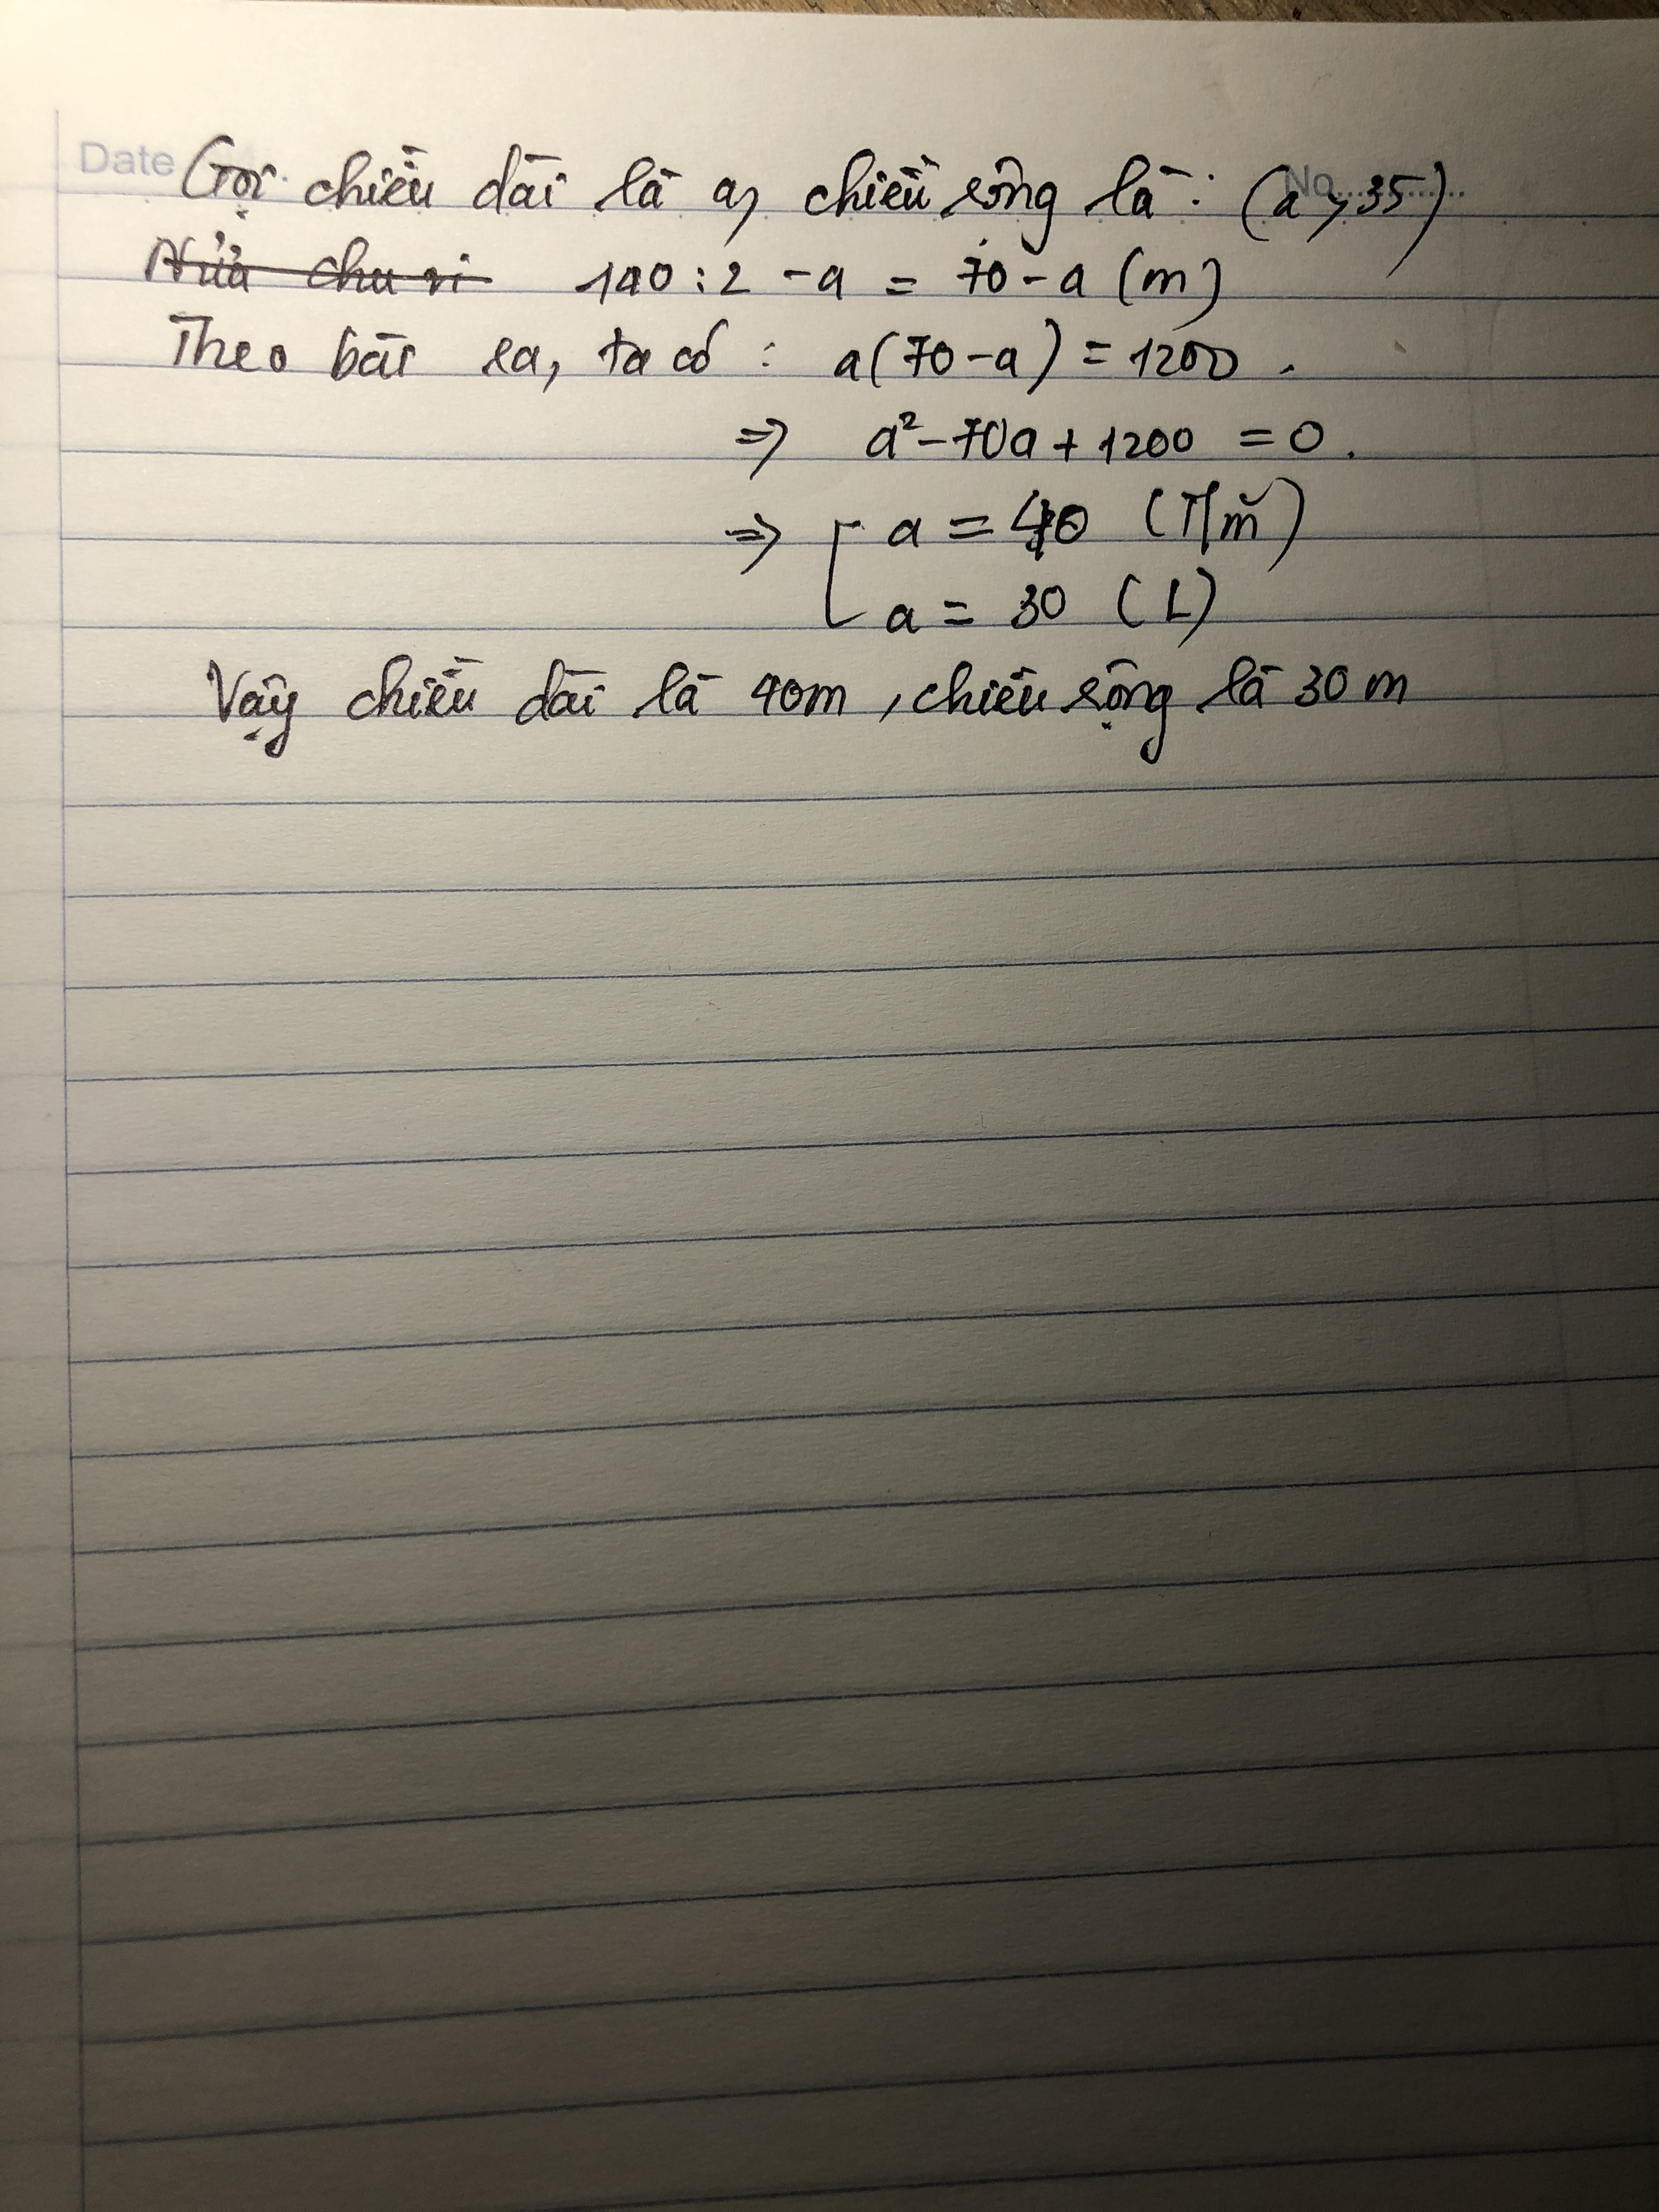 Date Gọi chiều dài là a, chiều rộng là: (a > 35) No.............
Nửa chu vi 140 : 2 - a = 70 - a (m)
Theo bài ra, ta có : a(70 - a) = 1200 .
=> a² - 70a + 1200 = 0 .
=> [ a = 40 (T/m)
a = 30 (L)
Vậy chiều dài là 40m , chiều rộng là 30 m